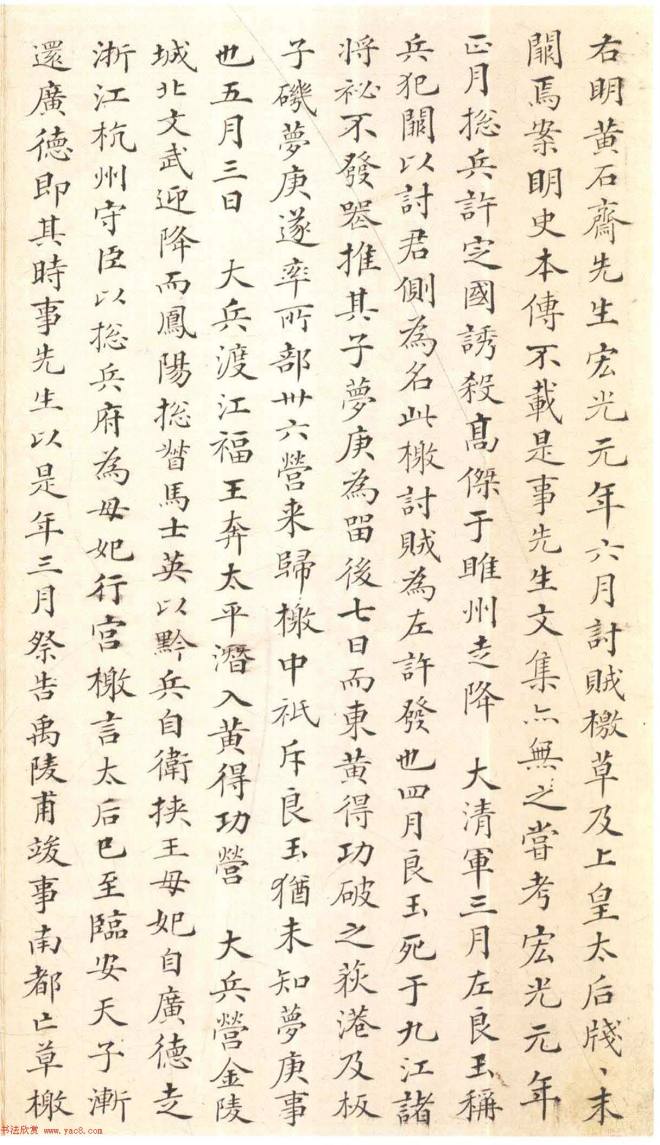 右明黄石齋先生宏光元年六月討賊檄草及上皇太后牋〻末
闕焉案明史本傳不載是事先生文集亦無之嘗考宏光元年
正月揔兵許定國誘殺高傑于睢州走降　大清軍三月左良玉稱
兵犯闕以討君側為名此檄討賊為左許發也四月良玉死于九江諸
將祕不發器推其子夢庚為畱後七日而東黄得功破之荻港及板
子磯夢庚遂率所部卅六營来歸檄中祇斥良玉猶未知夢庚事
也五月三日　大兵渡江福王奔太平潛入黄得功營　大兵營金陵
城北文武迎降而鳳陽揔督馬士英以黔兵自衛挟王母妃自廣德走
浙江杭州守臣以揔兵府為母妃行宫檄言太后已至臨安天子漸
還廣德即其時事先生以是年三月祭告禹陵甫竣事南都亡草檄
书法欣赏 www.yac8.com